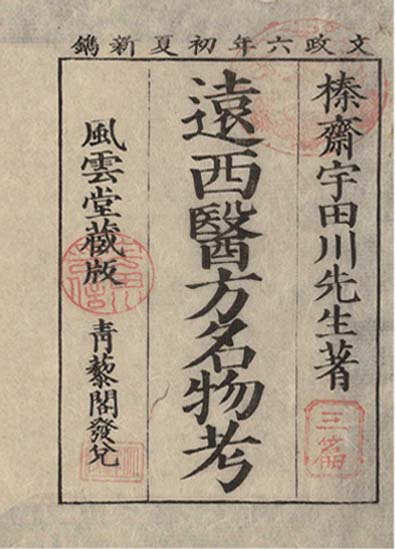 文政六年初夏新鐫
榛齋宇田川先生著
三篇
遠西醫方名物考
風雲堂藏版
青藜閣發兌